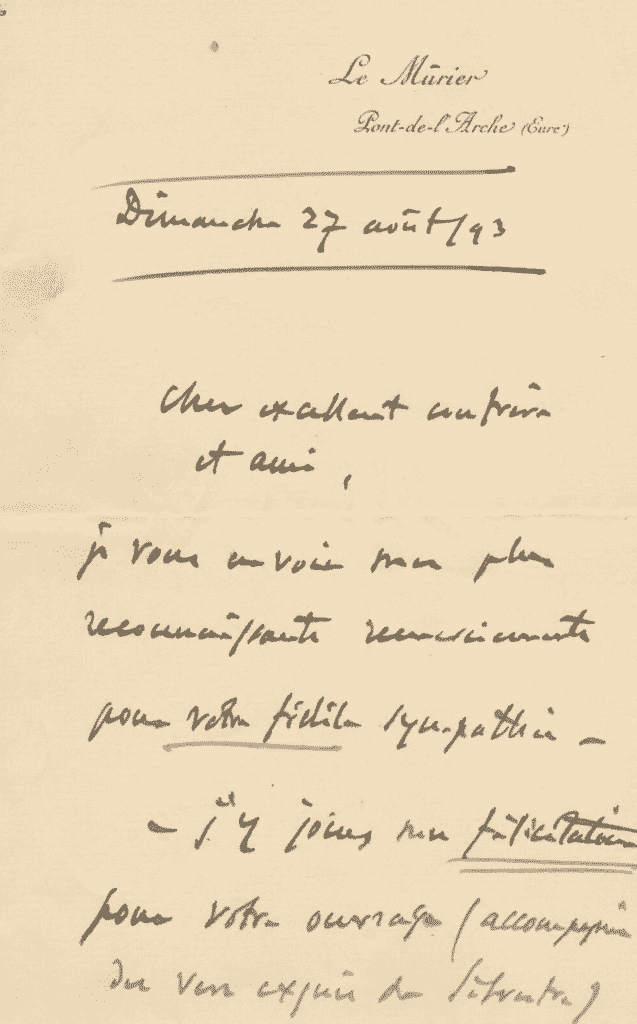 Le Mûrier
Pont-de-l'Arche (Eure)
Dimanche 27 août/93
Cher excellent confrère
et ami,
je vous envoie mes plus
reconnaissants remerciements
pour votre fidèle sympathie –
– j'y joins mes félicitations
pour votre ouvrage (accompagné
des vers exquis de Silvestre)